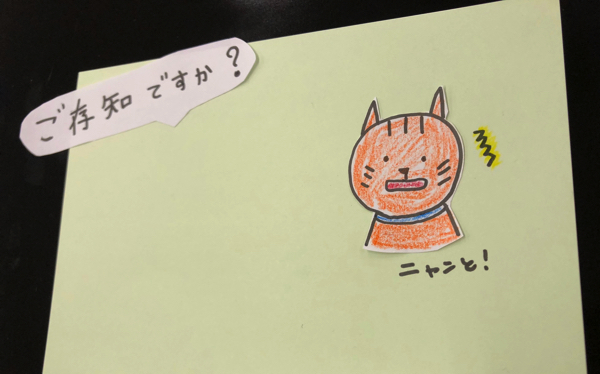 ご存知ですか？
ニャンと！